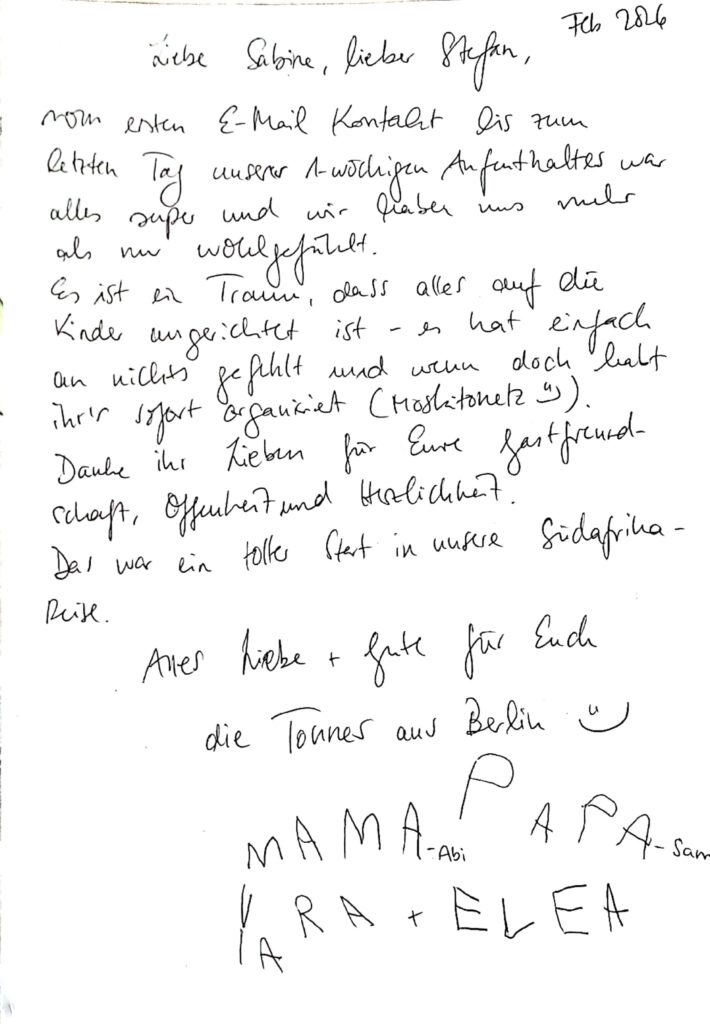 Feb 2026
Liebe Sabine, lieber Stefan,
vom ersten E-Mail Kontakt bis zum
letzten Tag unserer 1-wöchigen Aufenthaltes war
alles super und wir haben uns mehr
als nur wohlgefühlt.
Es ist ein Traum, dass alles auf die
Kinder ausgerichtet ist - es hat einfach
an nichts gefehlt und wenn doch habt
ihr's sofort organisiert (Moskitonetz ☺).
Danke ihr Lieben für Eure Gastfreund-
schaft, Offenheit und Herzlichkeit.
Das war ein toller Start in unsere Südafrika-
Reise.
Alles Liebe + Gute für Euch
die Tonnes aus Berlin ☺
MAMA-Abi PAPA-Sam
YARA + ELEA